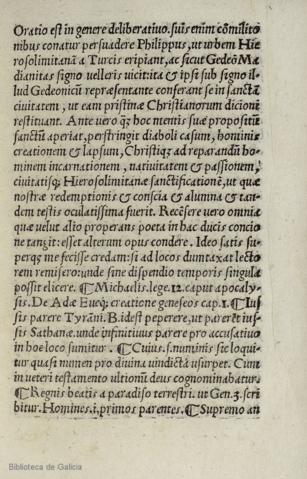 Oratio est in genere deliberatiuo. suis enim cõmilito
nibus conatur persuadere Philippus, ut urbem Hie
rosolimitanã a Turcis eripiant, ac sicut Gedeõ Ma
dianitas signo velleris vicit: ita & ipsi sub signo il-
lud Gedeonicũ repræsentante conferant se in sanctã
ciuitatem, ut eam pristinæ Christianorum dicioni
restituant. Ante vero q̃ hoc mentis suæ propositũ
sanctũ aperiat, perstringit diaboli casum, hominis
creationem & lapsum, Christiq; ad reparandũ ho-
minem incarnationem, natiuitatem & passionem,
ciuitatisq; Hierosolimitanæ sanctificationẽ, ut quæ
nostræ redemptionis & conscia & alumna & tan-
dem testis oculatissima fuerit. Recẽsere vero omnia
quæ velut alio properans poeta in hac ducis concio
ne tangit: esset alterum opus condere. Ideo satis su-
perq; me fecisse credam: si ad locos duntaxat lecto
rem remisero: unde sine dispendio temporis singula
possit elicere. ¶ Michaelis. lege. 12. caput apocaly-
sis. De Adæ Euæq; creatione geneseos cap. 1. ¶ Ius
sis parere Tyrãni. B. idest peperere, ut pareret ius-
sis Sathanæ. unde infinitiuus parere pro accusatiuo
in hoc loco sumitur. ¶ Cuius. s. numinis sic loqui-
tur quasi numen pro diuina vindicta usurpet. Cum
in ueteri testamento ultionũ deus cognominabatur.
¶ Regnis beatis a paradiso terrestri. ut Gen. 3. scri
bitur. Homines. i. primos parentes. ¶ Supremo an
Biblioteca de Galicia